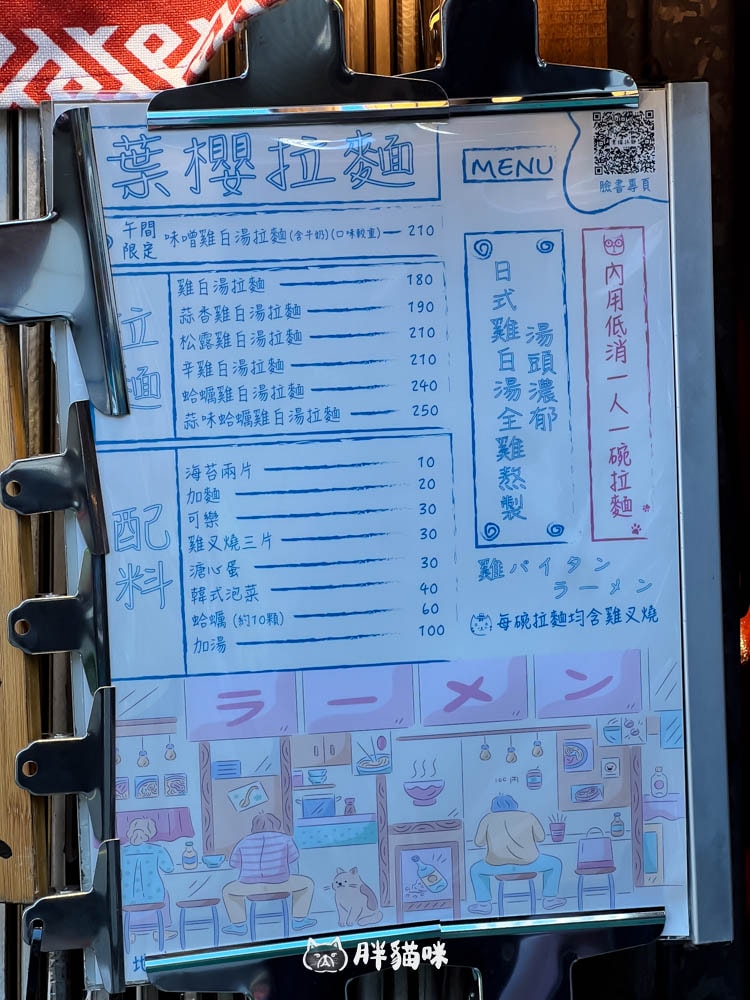 葉櫻拉麵
MENU
臉書專頁
午間限定 味噌雞白湯拉麵(含牛奶)(口味較重) 210
拉麵
雞白湯拉麵 180
蒜香雞白湯拉麵 190
松露雞白湯拉麵 210
辛雞白湯拉麵 210
蛤蠣雞白湯拉麵 240
蒜味蛤蠣雞白湯拉麵 250
配料
海苔兩片 10
加麵 20
可樂 30
雞叉燒三片 30
溏心蛋 30
韓式泡菜 40
蛤蠣(約10顆) 60
加湯 100
湯頭濃郁
日式雞白湯全雞熬製
內用低消一人一碗拉麵
雞パイタン
ラーメン
每碗拉麵均含雞叉燒
ラーメン
100円
胖貓咪